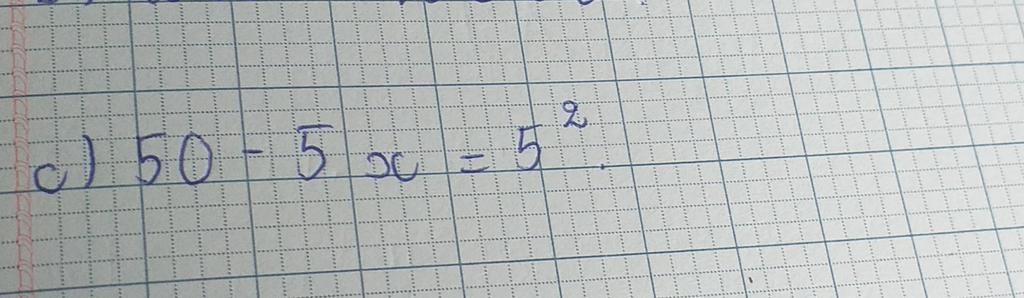 c) 50 - 5 x = 5².